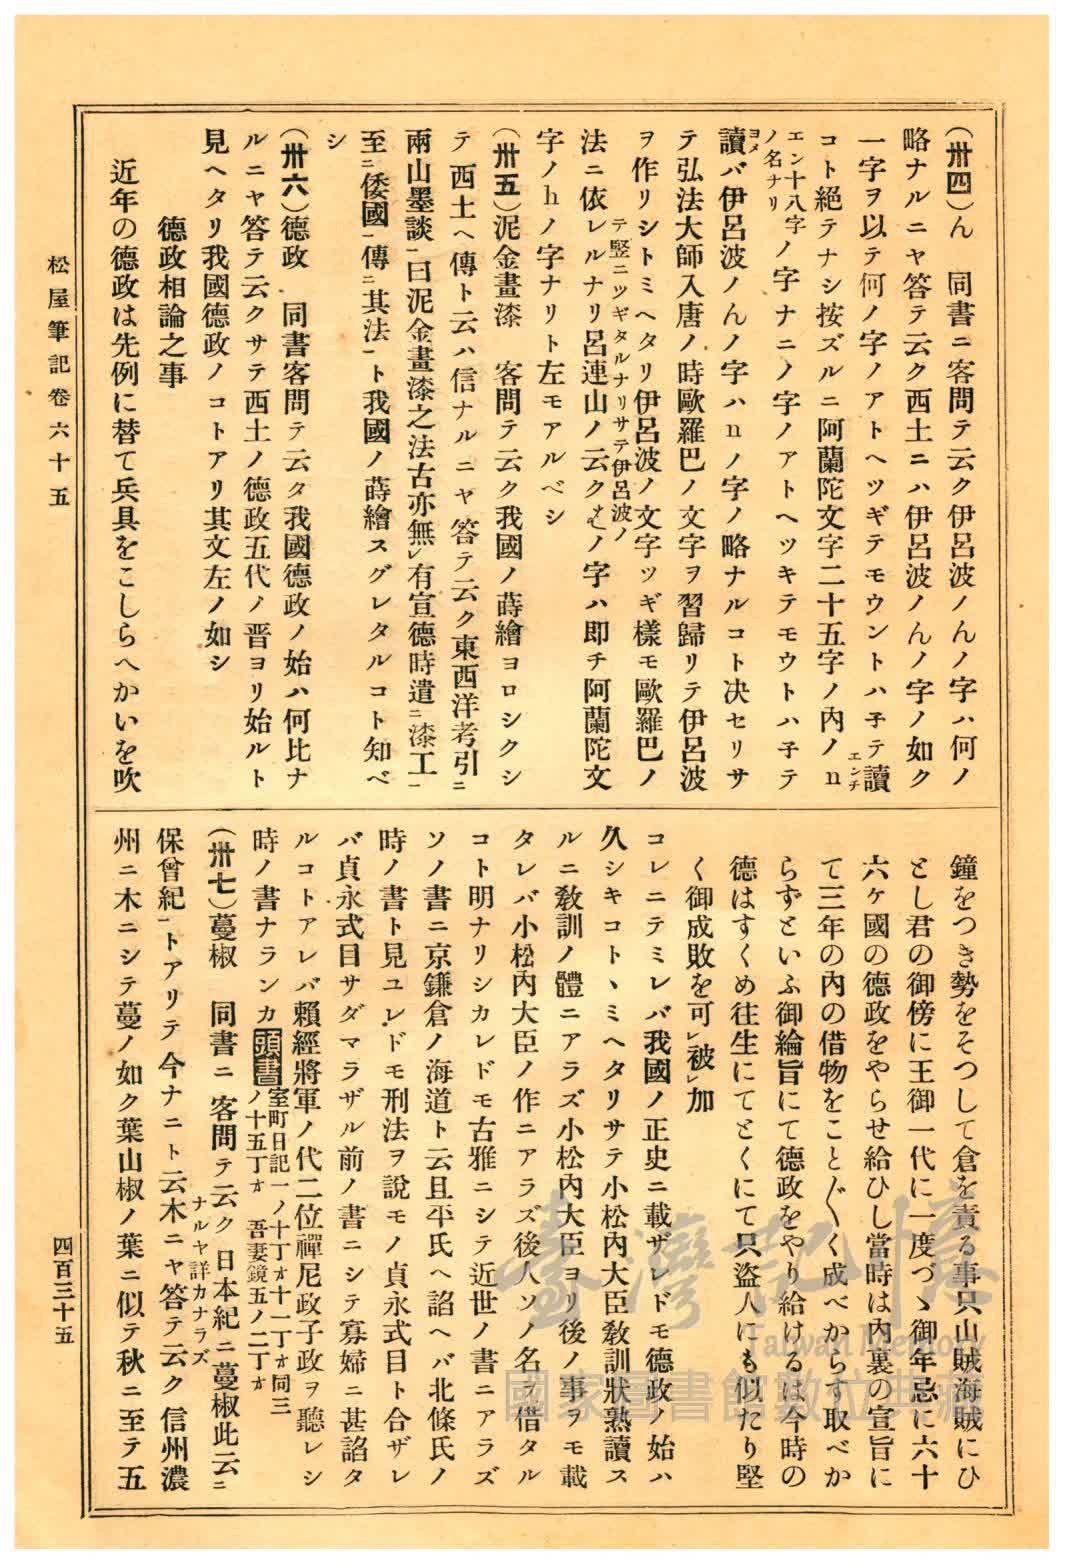 (卅四)ん　同書ニ客問テ云ク伊呂波ノんノ字ハ何ノ
略ナルニヤ答テ云ク西土ニハ伊呂波ノんノ字ノ如ク
一字ヲ以テ何ノ字ノアトヘツギテモウントハ子テ讀
エンチ
コト絶テナシ按ズルニ阿蘭陀文字二十五字ノ内ノn
エン十八字
ノ名ナリ
ノ字ナニノ字ノアトヘツキテモウトハ子テ
讀バ伊呂波ノんノ字ハnノ字ノ略ナルコト决セリサ
ヨメ
テ弘法大師入唐ノ時歐羅巴ノ文字ヲ習歸リテ伊呂波
ヲ作リシトミヘタリ伊呂波ノ文字ツギ樣モ歐羅巴ノ
テ堅ニツギタルナリサテ伊呂波ノ
法ニ依レルナリ呂連山ノ云クはノ字ハ即チ阿蘭陀文
字ノhノ字ナリト左モアルベシ
(卅五)泥金畫漆　客問テ云ク我國ノ蒔繪ヨロシクシ
テ西土ヘ傳ト云ハ信ナルニヤ答テ云ク東西洋考引ニ
兩山墨談一曰泥金畫漆之法古亦無レ有宣德時遣ニ漆工一
至ニ倭國一傳ニ其法一ト我國ノ蒔繪スグレタルコト知ベ
シ
(卅六)德政　同書客問テ云タ我國德政ノ始ハ何比ナ
ルニヤ答テ云クサテ西土ノ德政五代ノ晋ヨリ始ルト
見ヘタリ我國德政ノコトアリ其文左ノ如シ
德政相論之事
近年の德政は先例に替て兵具をこしらへかいを吹
鐘をつき勢をそつして倉を責る事只山賊海賊にひ
とし君の御傍に王御一代に一度づゝ御年忌に六十
六ケ國の德政をやらせ給ひし當時は內裏の宣旨に
て三年の内の借物をこと〴〵く成べからす取べか
らずといふ御綸旨にて德政をやり給けるは今時の
德はすくめ往生にてとくにて只盜人にも似たり堅
く御成敗を可レ被レ加
コレニテミレバ我國ノ正史ニ載ザレドモ德政ノ始ハ
久シキコトヽミヘタリサテ小松内大臣敎訓狀熟讀ス
ルニ敎訓ノ體ニアラズ小松内大臣ヨリ後ノ事ヲモ載
タレバ小松内大臣ノ作ニアラズ後人ソノ名ヲ借タル
コト明ナリシカレドモ古雅ニシテ近世ノ書ニアラズ
ソノ書ニ京鎌倉ノ海道ト云且平氏ヘ諂ヘバ北條氏ノ
時ノ書ト見ユレドモ刑法ヲ說モノ貞永式目ト合ザレ
バ貞永式目サダマラザル前ノ書ニシテ寡婦ニ甚諂タ
ルコトアレバ賴經將軍ノ代二位禪尼政子政ヲ聽レシ
時ノ書ナランカ頭書室町日記一ノ十丁オ十一丁オ同三
ノ十五丁オ　吾妻鏡五ノ二丁オ
(卅七)蔓椒　同書ニ客問テ云ク日本紀ニ蔓椒此云ニ
保曾紀一トアリテ今ナニト云木ニヤ答テ云ク信州濃
ナルヤ詳カナラズ
州ニ木ニシテ蔓ノ如ク葉山椒ノ葉ニ似テ秋ニ至テ五
松屋筆記卷六十五
四百三十五
臺灣記憶
Taiwan Memory
國家圖書館數位典藏